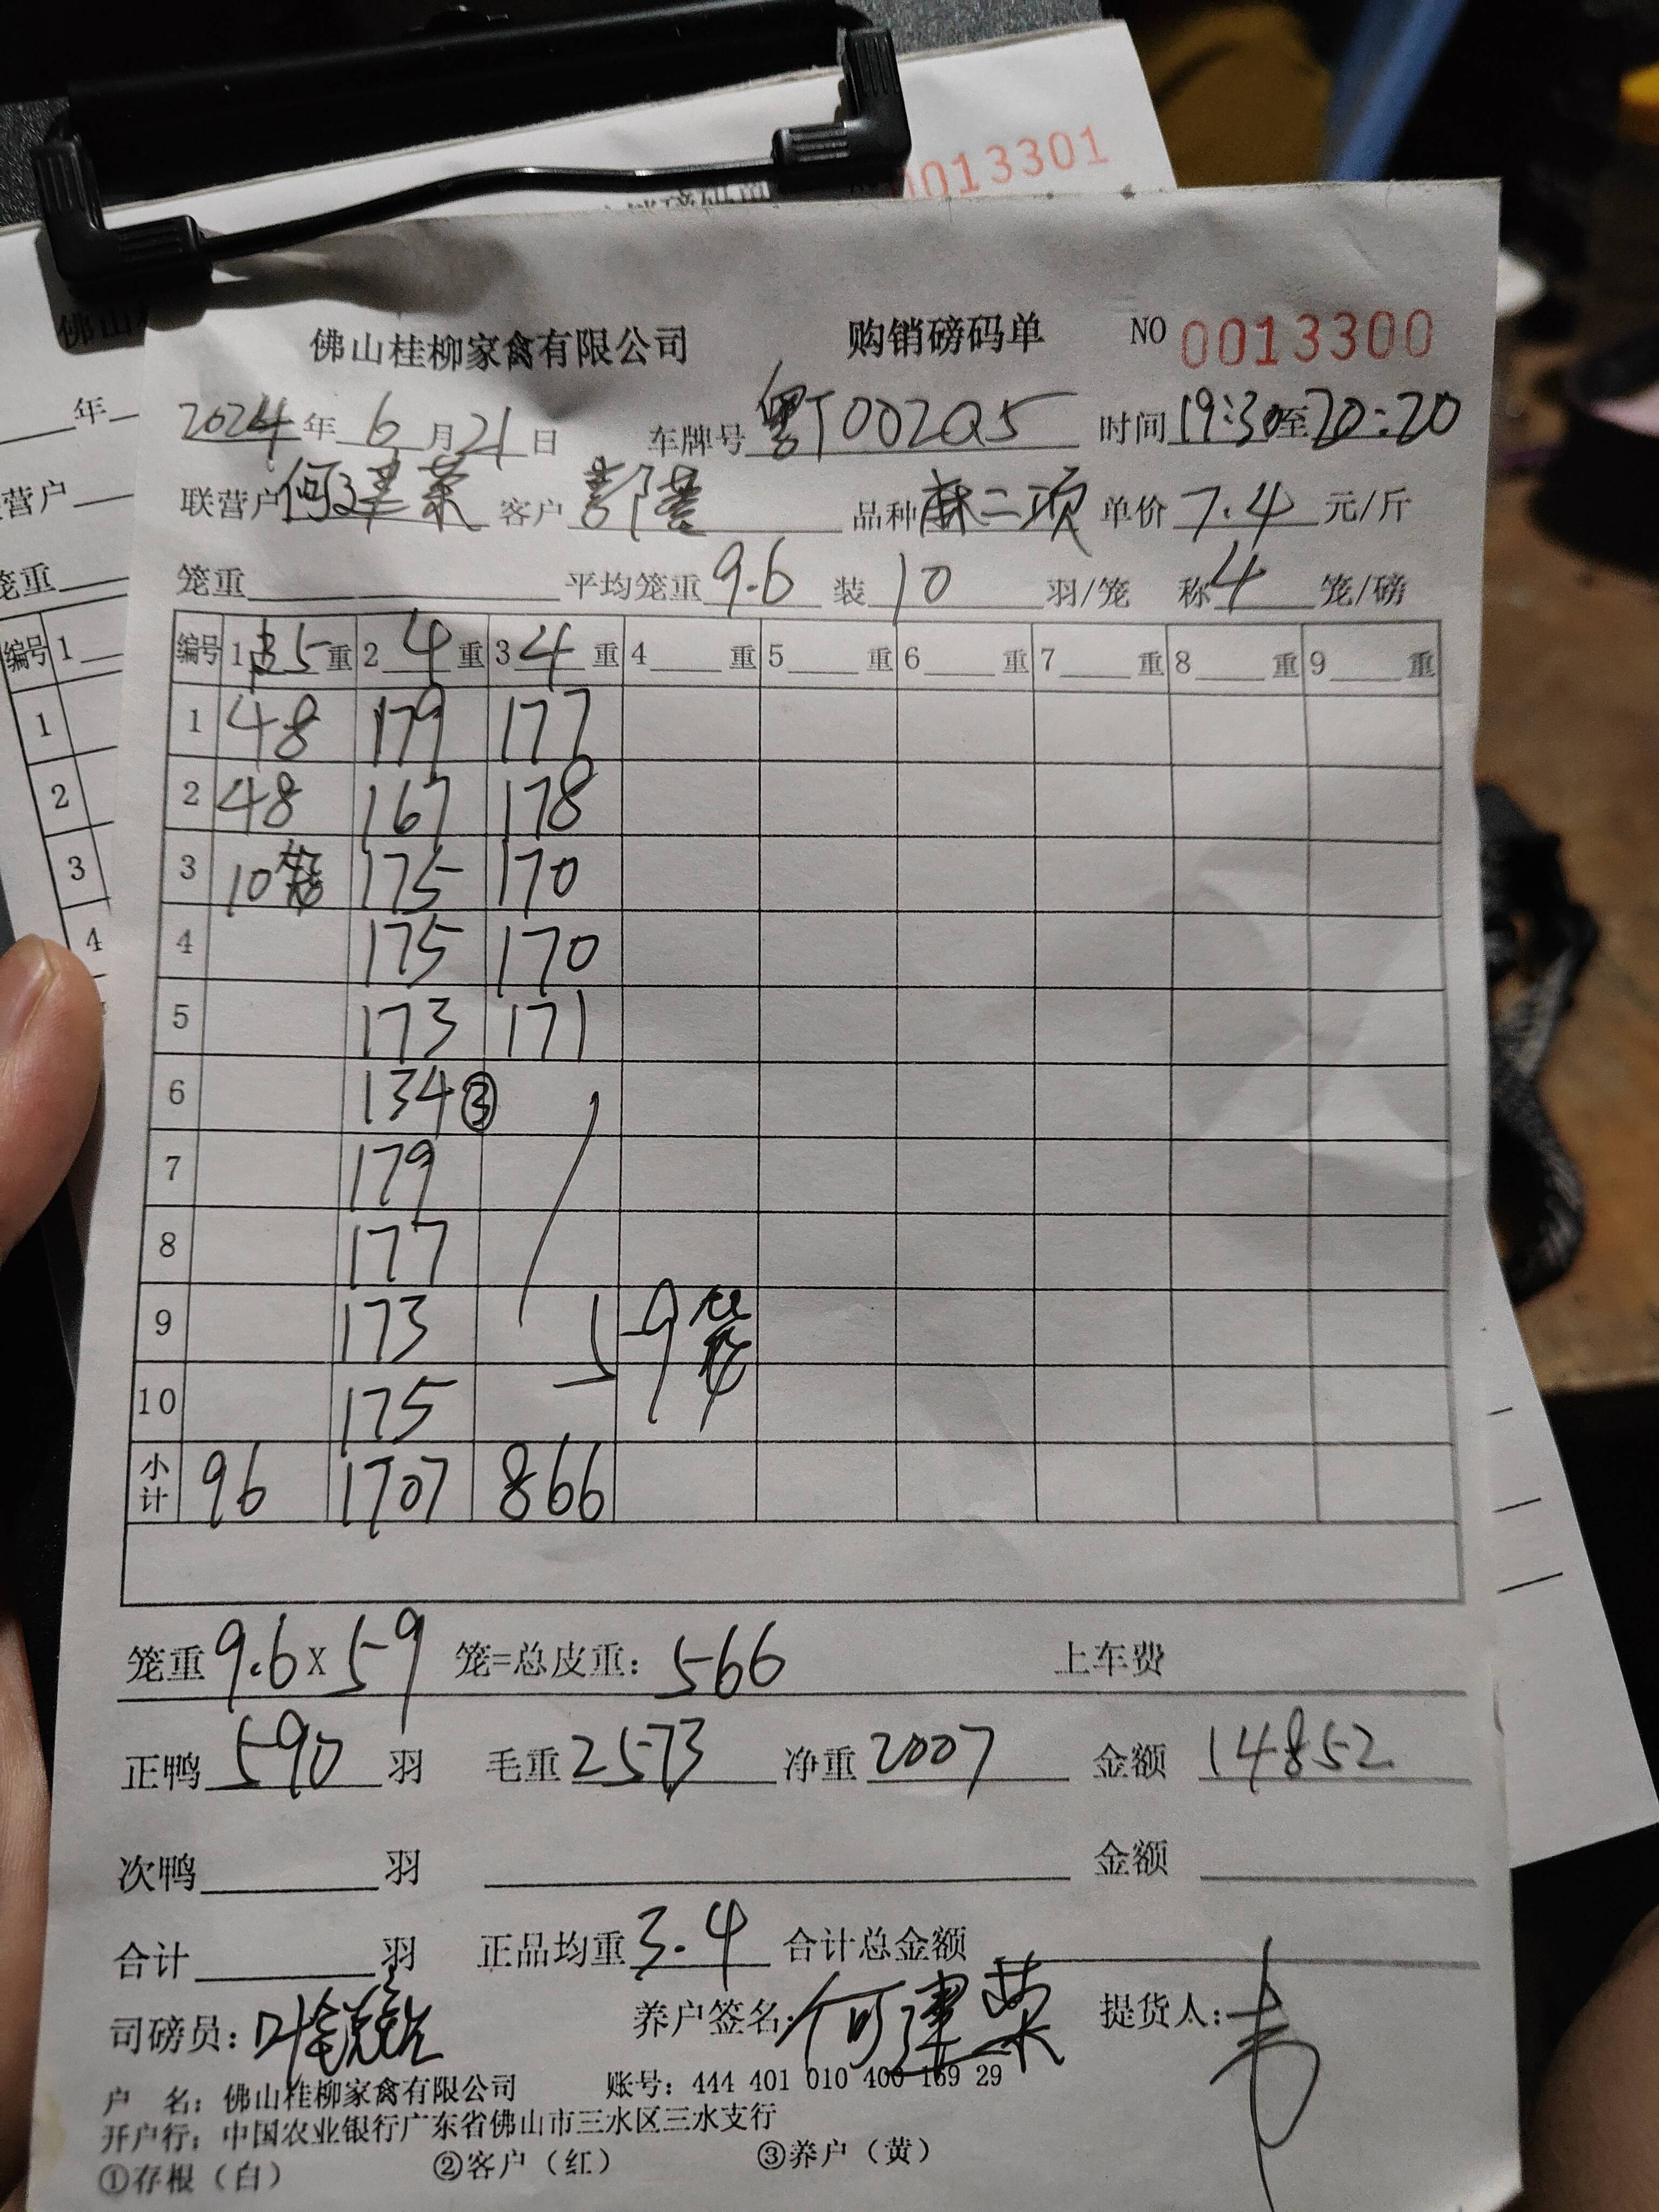 0013301
佛山桂柳家禽有限公司 购销磅码单 NO 0013300
2024年6月21日 车牌号粤T002Q5 时间19:30至20:20
联营户何建荣 客户 品种麻二项 单价7.4元/斤
笼重 平均笼重9.6 装10羽/笼 称4笼/磅
编号 1皮5重 2 4重 3 4重 4 重 5 重 6 重 7 重 8 重 9 重
1 48 179 177
2 48 167 178
3 10笼 175 170
4 175 170
5 173 171
6 134③
7 179
8 177
9 173 59笼
10 175
小计 96 1707 866
笼重9.6X59笼=总皮重:566 上车费
正鸭590羽 毛重2573 净重2007 金额14852
次鸭 羽 金额
合计 羽 正品均重3.4 合计总金额
司磅员:叶 养户签名:何建荣 提货人:
户 名:佛山桂柳家禽有限公司 账号:444 401 010 400 169 29
开户行:中国农业银行广东省佛山市三水区三水支行
①存根(白) ②客户(红) ③养户(黄)
年
营户
笼重
编号 1
1
2
3
4